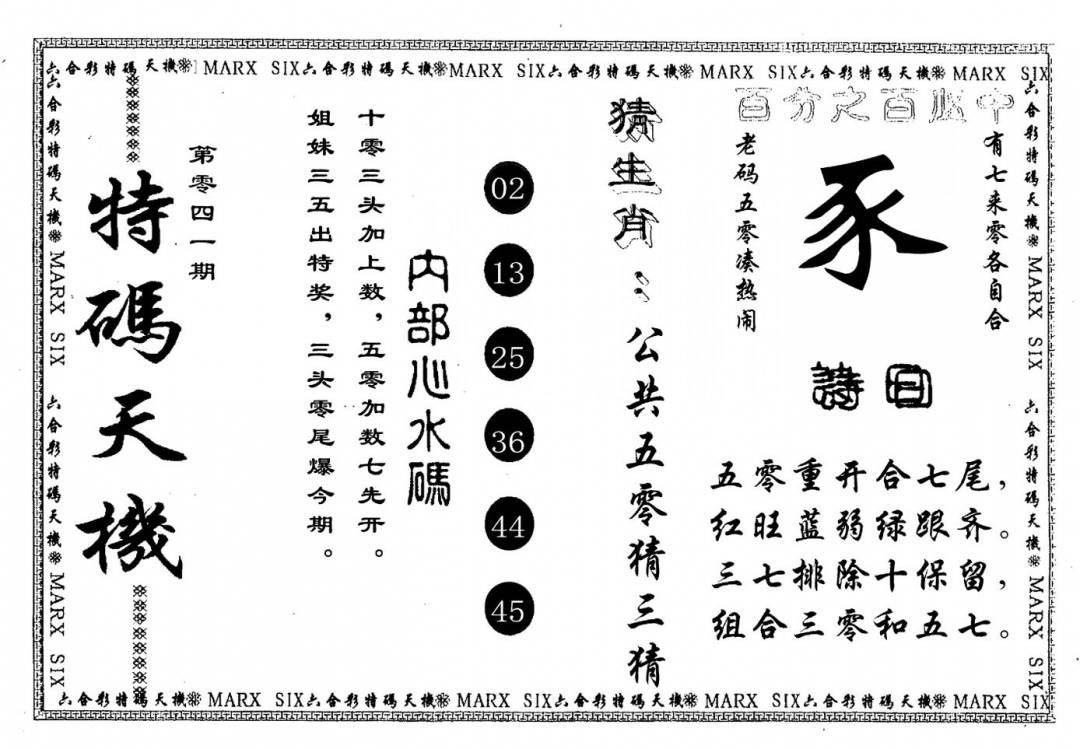 六合彩特碼天機 MARX SIX六合彩特碼天機MARX SIX六合彩特碼天機 MARX SIX六合彩特碼天機 MARX SIX
百分之百必中
有七来零各自合
豕
老码五零凑热闹
詩曰
五零重开合七尾，
红旺蓝弱绿跟齐。
三七排除十保留，
组合三零和五七。
猜生肖：公共五零猜三猜
02
13
25
36
44
45
内部心水碼
十零三头加上数，五零加数七先开。
姐妹三五出特奖，三头零尾爆今期。
第零四一期
特碼天機
六合彩特碼天機 MARX SIX 六合彩特碼天機 MARX SIX
六合彩特碼天機 MARX SIX 六合彩特碼天機 MARX SIX
六合彩特碼天機 MARX SIX六合彩特碼天機 MARX SIX六合彩特碼天機 MARX SIX六合彩特碼天機 MARX SIX